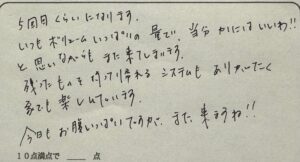 5回目くらいになります。
いつもボリュームいっぱいの量で、当分かにはいいわ!!
と思いながらもまた来てしまいます。
残ったものを持って帰れるシステムもありがたく
家でも楽しんでいます。
今日もお腹いっぱいですが、また来ますね!!
10点満点で 点